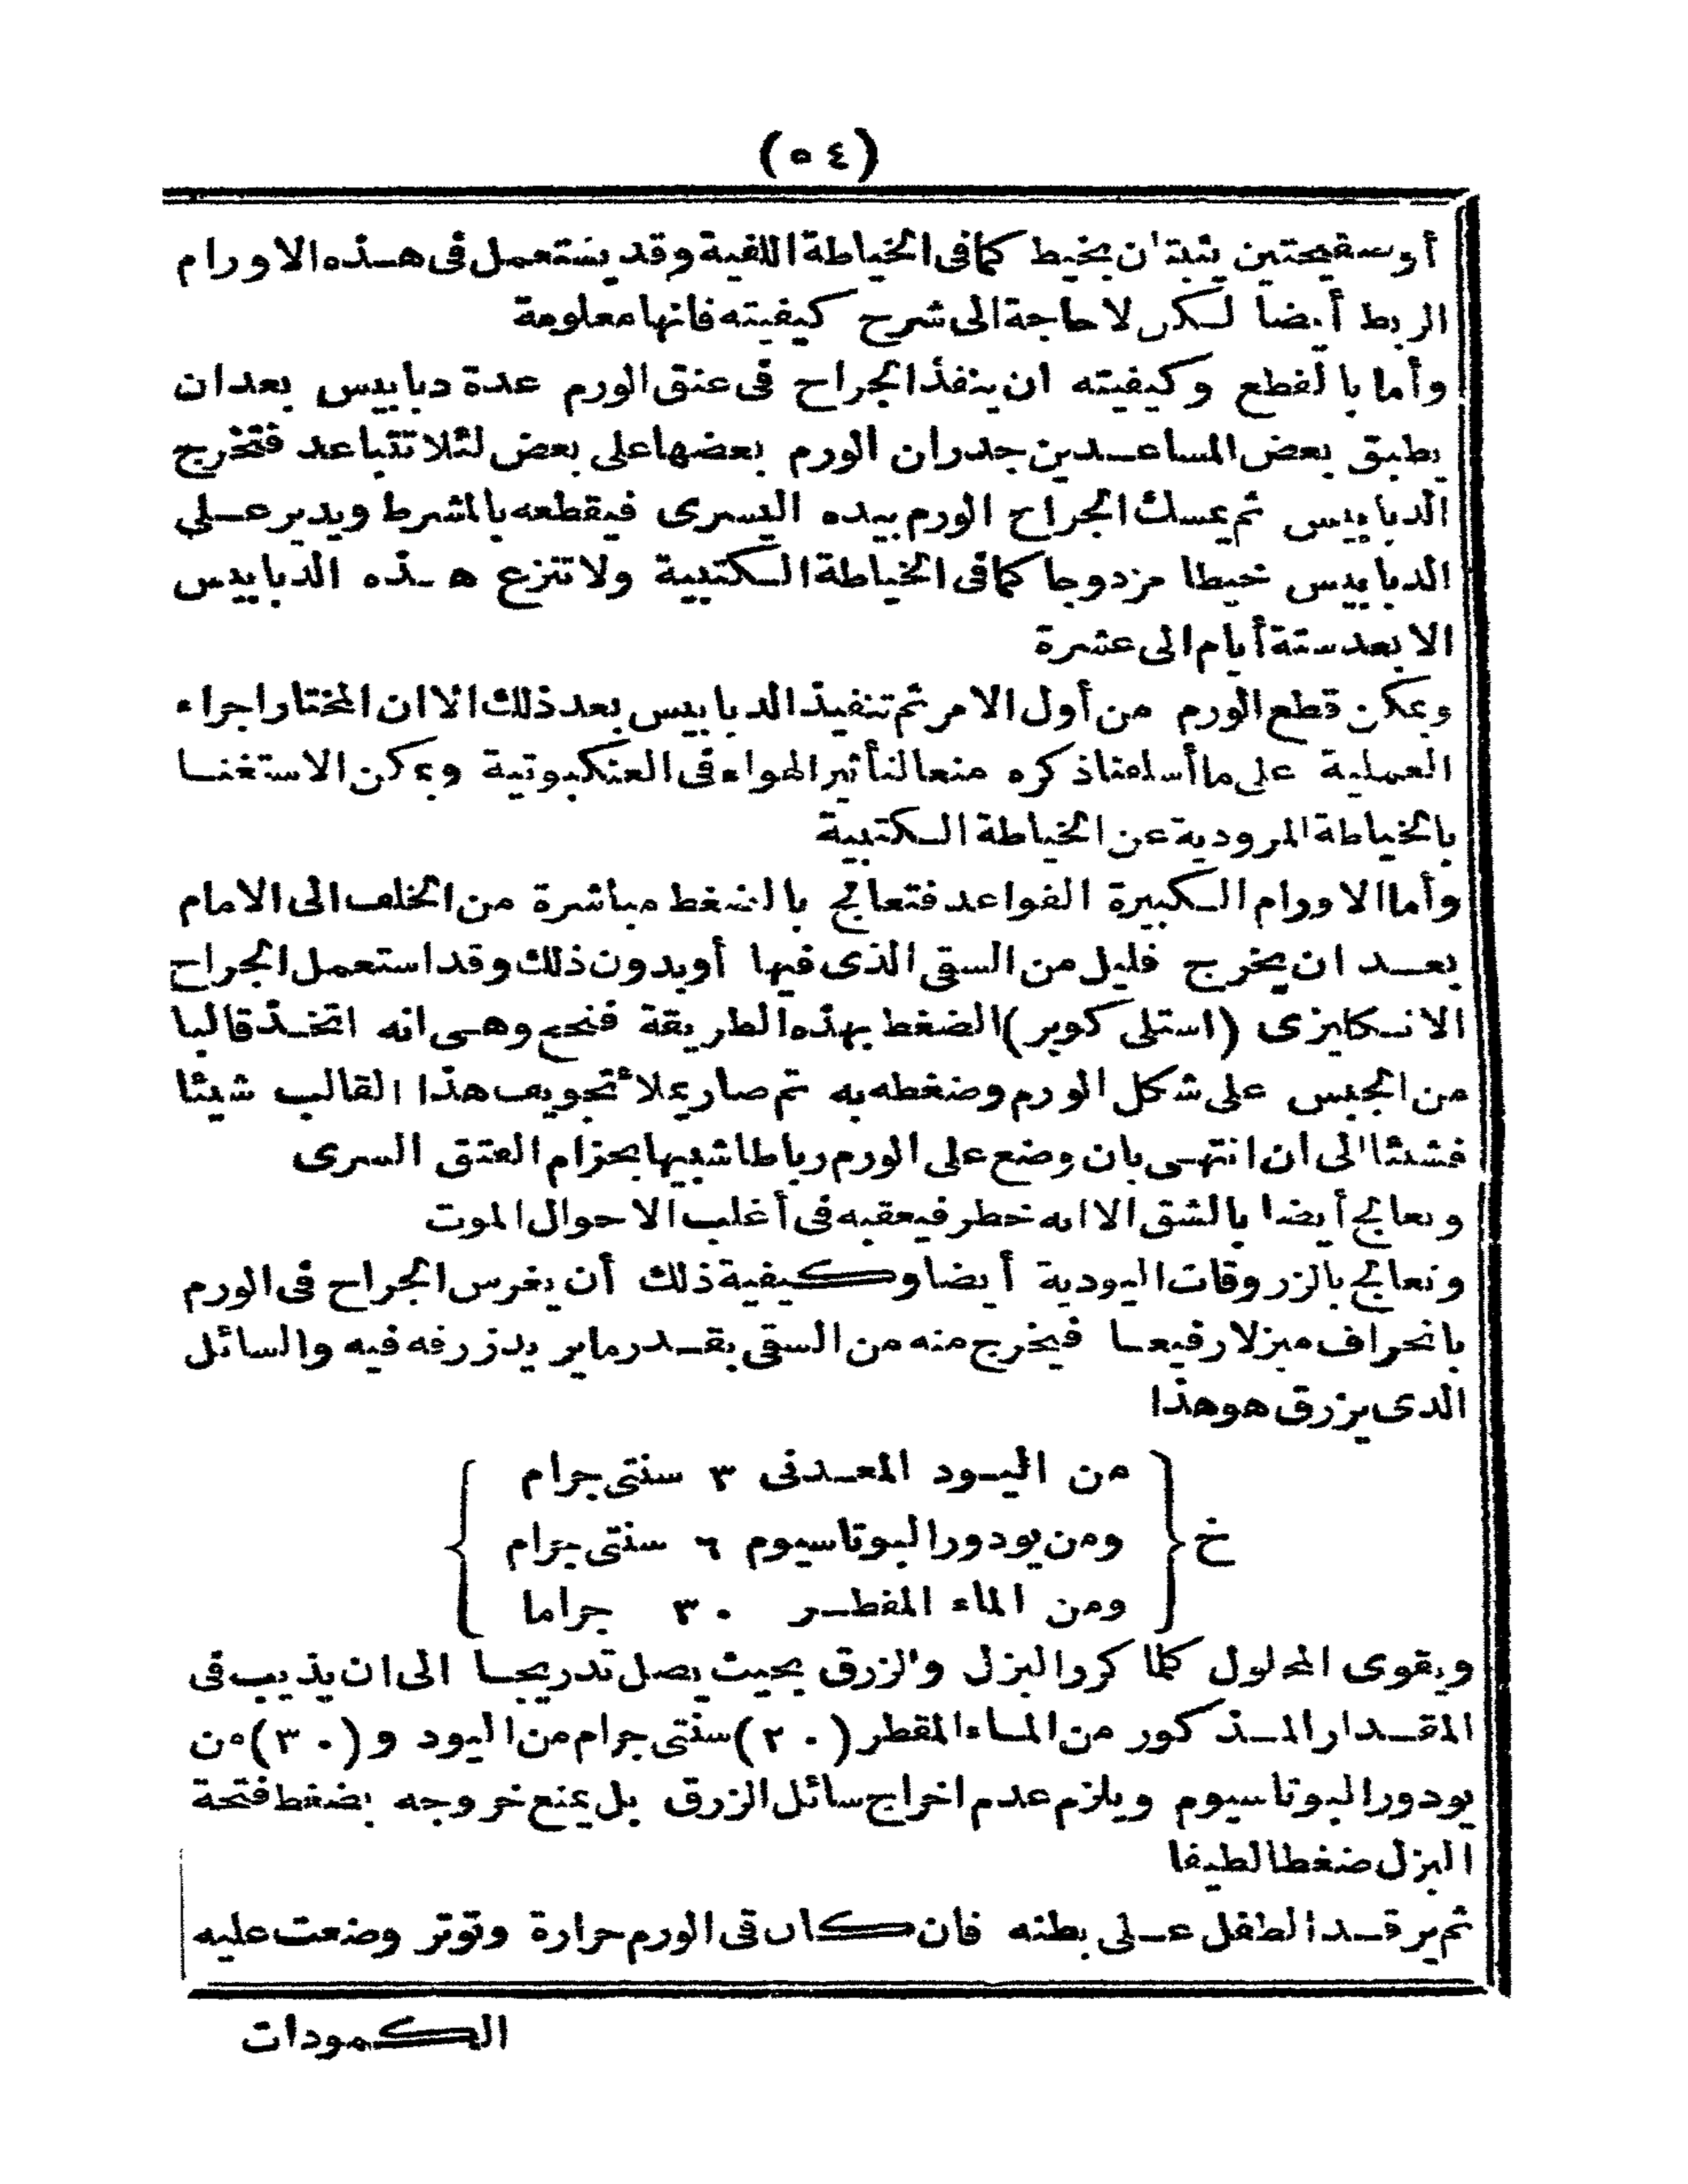 (٥٤)
أو سفيحتين يثبتان بخيط كما فى الخياطة اللفية وقد يستعمل فى هذه الاورام
الربط أيضا لكن لا حاجة الى شرح كيفيته فانها معلومة
وأما بالقطع وكيفيته ان ينفذ الجراح فى عنق الورم عدة دبابيس بعد ان
يطبق بعض المساعدين جدران الورم بعضها على بعض لئلا تتباعد فتخرج
الدبابيس ثم يمسك الجراح الورم بيده اليسرى فيقطعه بالمشرط ويدير على
الدبابيس خيطا مزدوجا كما فى الخياطة الكتبية ولا تنزع هذه الدبابيس
الا بعد ستة أيام الى عشرة
ويمكن قطع الورم من أول الامر ثم تنفيذ الدبابيس بعد ذلك الا ان المختار اجراء
العملية على ما أسلفنا ذكره منعا لتأثير الهواء فى العنكبوتية ويمكن الاستغنا
بالخياطة المرودية عن الخياطة الكتبية
وأما الاورام الكبيرة القواعد فتعالج بالضغط مباشرة من الخلف الى الامام
بعد ان يخرج قليل من السقى الذى فيها أو بدون ذلك وقد استعمل الجراح
الانكليزى (استلى كوپر) الضغط بهذه الطريقة فنجح وهى انه اتخذ قالبا
من الجبس على شكل الورم وضغطه به ثم صار يملأ تجويف هذا القالب شيئا
فشيئا الى ان انتهى بان وضع على الورم رباطا شبيها بحزام الفتق السرى
وتعالج أيضا بالشق الا انه خطر فيعقبه فى أغلب الاحوال الموت
وتعالج بالزروقات اليودية أيضا وكيفية ذلك أن يغرس الجراح فى الورم
بانحراف مبزلا رفيعا فيخرج منه من السقى بقدر ما يريد زرقه فيه والسائل
الذى يزرق هو هذا
خ { من اليود المعدنى ٣ سنتى جرام
ومن يودور البوتاسيوم ٦ سنتى جرام
ومن الماء المقطر ٣٠ جراما }
ويقوى المحلول كلما كرر البزل والزرق بحيث يصل تدريجا الى ان يذيب فى
المقدار المذكور من الماء المقطر (٢٠) سنتى جرام من اليود و (٣٠) من
يودور البوتاسيوم ويلزم عدم اخراج سائل الزرق بل يمنع خروجه بضغط فتحة
البزل ضغطا لطيفا
ثم يرقد الطفل على بطنه فان كان فى الورم حرارة وتوتر وضعت عليه
الكمودات